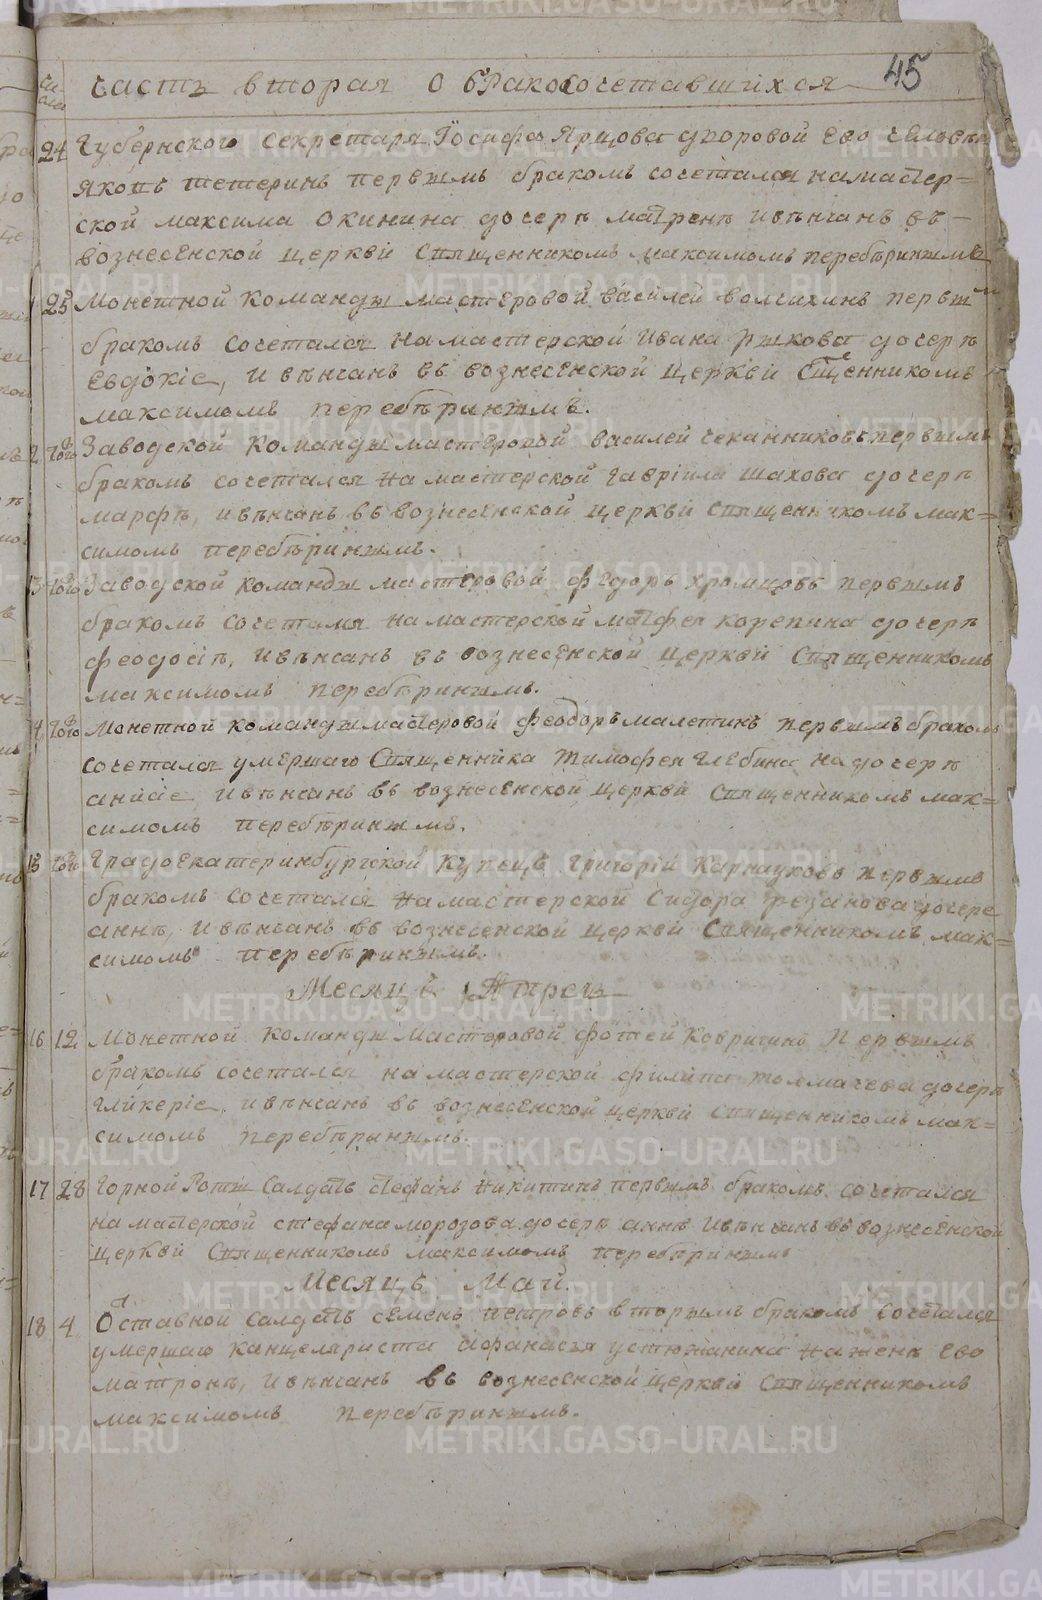 45
часть вторая о бракосочетавшихся
24 Губернского секретаря Іосифа Ярцова дворовой его человек
яковъ тетеринъ первымъ бракомъ сочетался на мастер=
ской максима окинина дочере матренѣ и вѣнчанъ въ
вознесенской церквѣ священникомъ максимомъ перебѣринымъ
25 Монетной команды мастеровой василей волчихинъ первым
бракомъ сочетался на мастерской ивана рыкова дочерѣ
Евдокіе, и вѣнчанъ въ вознесенской церквѣ священникомъ
максимомъ перебѣринымъ.
того Заводской команды мастеровой василей чеканниковъ первымъ
бракомъ сочетался на мастерской гавріила шахова дочерѣ
марфѣ, и вѣнчанъ въ вознесенской церквѣ священникомъ мак=
симомъ перебѣринымъ.
13 того Заводской команды мастеровой федоръ хромцовъ первымъ
бракомъ сочетался на мастерской матфея корепина дочерѣ
феодосіѣ, и вѣнчанъ въ вознесенской церквѣ священникомъ
максимомъ перебѣринымъ.
14 того Монетной команды мастеровой феодоръ малетинъ первымъ бракомъ
сочетался умершаго священника тимофея глебина на дочерѣ
анисіе и вѣнчанъ въ вознесенской церквѣ священникомъ мак=
симомъ перебѣринымъ.
15 того Градоекатеринбургской купецъ григорій карнауховъ первымъ
бракомъ сочетался на мастерской сидора резанова дочере
аннѣ, и вѣнчанъ въ вознесенской церквѣ священникомъ мак=
симомъ перебѣринымъ.
Месяцъ Апрель
16 12 Монетной команды мастеровой фотей ковригинъ первымъ
бракомъ сочетался на мастерской филипа толмачева дочерѣ
гликеріе, и вѣнчанъ въ вознесенской церквѣ священникомъ мак=
симомъ перебѣринымъ.
17 28 Горной роты салдатъ стефанъ никитинъ первымъ бракомъ сочетался
на мастерской стефана морозова дочерѣ аннѣ и вѣнчанъ въ вознесенской
церквѣ священникомъ максимомъ перебѣринымъ
Месяцъ Май.
18 4 Отставной салдатъ семенъ петровъ вторымъ бракомъ сочетался
умершаго канцеляриста афанасья устюжанина на женѣ его
матронѣ, и вѣнчанъ въ вознесенской церквѣ священникомъ
максимомъ перебѣринымъ.
METRIKI.GASO-URAL.RU